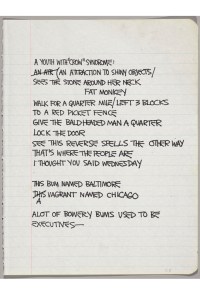 A YOUTH WITH "CROW" SYNDROME:
AN ART (AN ATTRACTION TO SHINY OBJECTS/
SEES THE STONE AROUND HER NECK
FAT MONKEY
WALK FOR A QUARTER MILE/LEFT 3 BLOCKS
TO A RED PICKET FENCE
GIVE THE BALDHEADED MAN A QUARTER
LOCK THE DOOR
SEE THIS REVERSE SPELLS THE OTHER WAY
THAT'S WHERE THE PEOPLE ARE
I THOUGHT YOU SAID WEDNESDAY
THIS BUM NAMED BALTIMORE
THIS VAGRANT NAMED CHICAGO
A LOT OF BOWERY BUMS USED TO BE
EXECUTIVES—